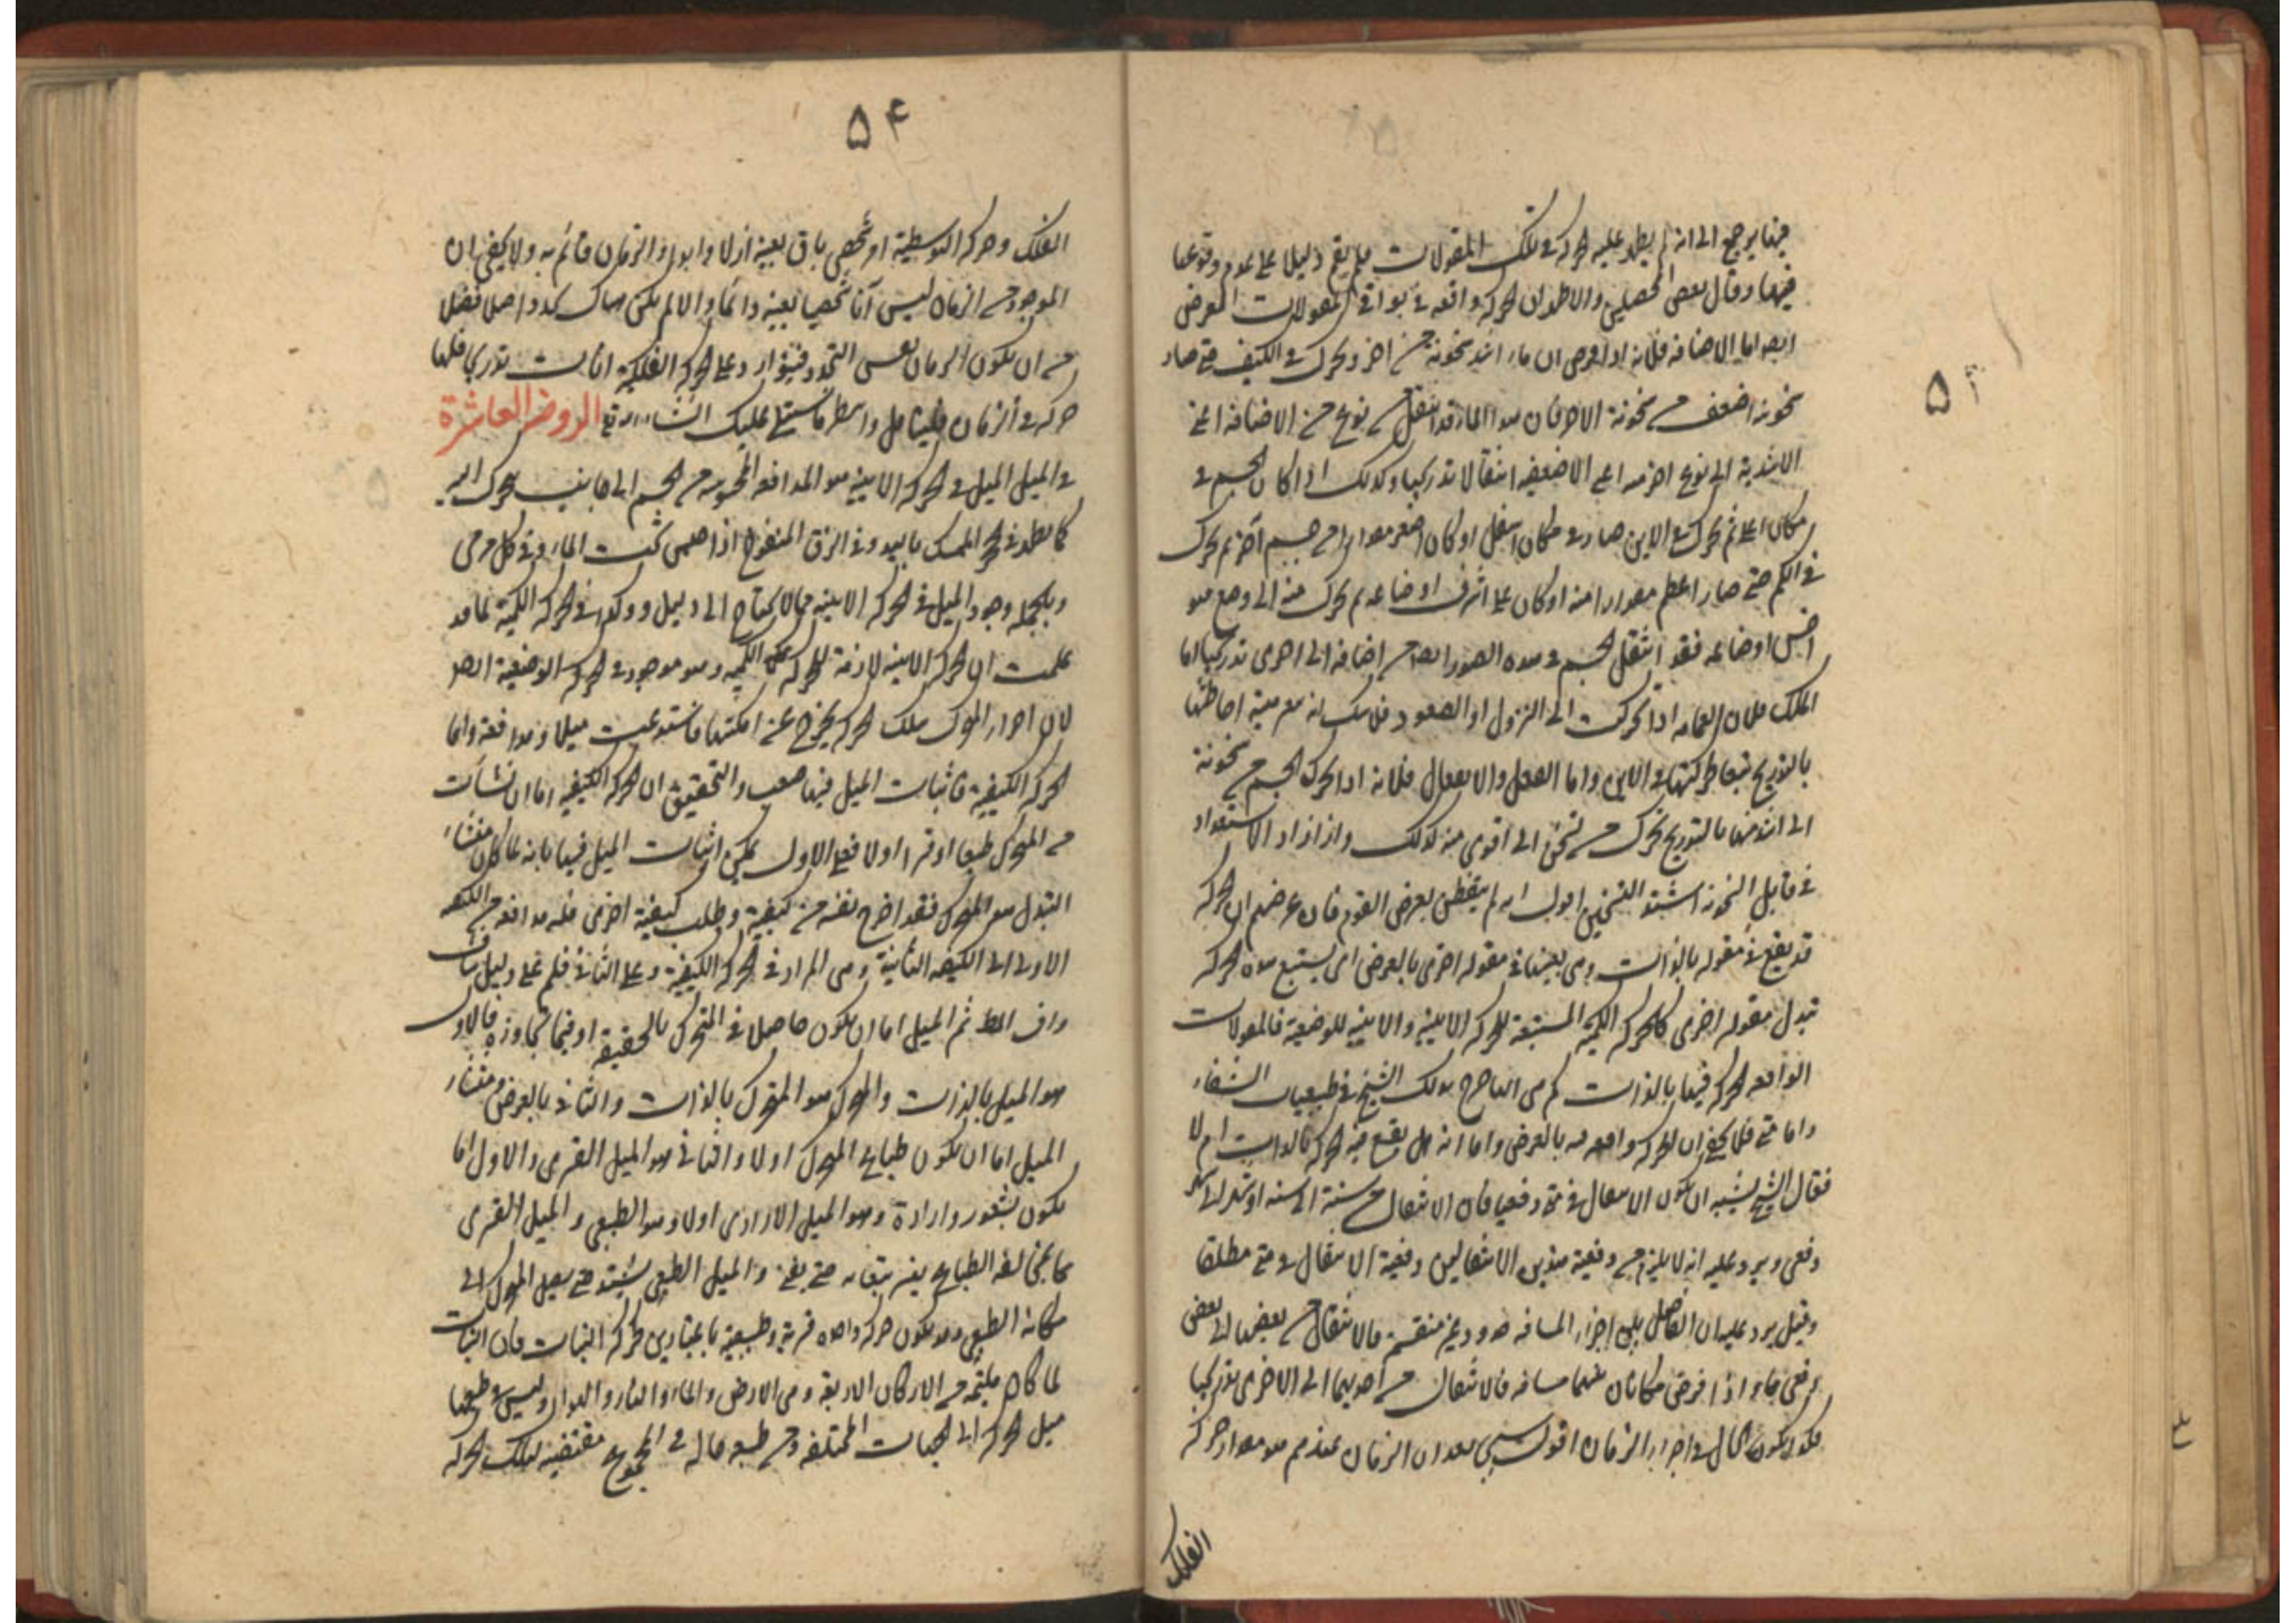 فيها يرجع الى انه لم يظهر عليه الحركة في تلك المقولات فلم يقع دليلا على عدم وقوعها
فيها وقال بعض المحصلين والاظهر ان الحركة واقعة في بواقي المقولات بالعرض
ايضا اما الاضافة فلانه اذا فرض ان ماء اشد سخونة من اخر وتحرك في الكيف حتى صار
سخونته اضعف من سخونة الاخر فان هذا الماء قد انتقل من نوع من الاضافة اعني
الاشدية الى نوع اخر منه اعني الاضعفية انتقالا تدريجيا وكذلك اذا كان الجسم في
مكان اعلى ثم تحرك في الاين حتى صار في مكان اسفل او كان اصغر مقدارا من جسم آخر ثم تحرك
في الكم حتى صار اعظم مقدارا منه او كان على اشرف اوضاعه ثم تحرك منه الى وضع هو
اخس اوضاعه فقد انتقل الجسم في هذه الصور ايضا من اضافة الى اخرى تدريجيا اما
الملك فلان العمامة اذا تحركت الى النزول او الصعود فلا شك انه تتغير هيئة احاطتها
بالتدريج تبعا لحركتها في الاين واما الفعل والانفعال فلانه اذا تحرك الجسم من سخونة
الى اشد منها بالتدريج تحرك من تسخن الى اقوى منه كذلك واذا ازداد الاستعداد
في قابل السخونة اشتد التسخين اقول انه لم يتفطن بغرض القوم فان غرضهم ان الحركة
قد يقع في مقولة بالذات وهي بعينها في مقولة اخرى بالعرض اي يستتبع هذه الحركة
تبدل مقولة اخرى كالحركة الكمية المستتبعة للحركة الاينية والاينية للوضعية فالمقولات
الواقعة الحركة فيها بالذات كم هي الى صرح بذلك الشيخ في طبيعيات الشفاء
واما متى فلا يخفى ان الحركة واقعة فيه بالعرض واما انه هل يقع فيه الحركة بالذات ام لا
فقال الشيخ يشبه ان يكون الانتقال في متى دفعيا فان الانتقال من سنة الى سنة او شهر الى شهر
دفعي ويرد عليه انه لا يلزم من دفعية هذين الانتقالين دفعية الانتقال في متى مطلقا
وقيل يرد عليه ان الفاصل بين اجزاء المسافة حدود غير منقسمة فالانتقال من بعضها الى بعض
دفعي فاذا فرض مكانان بينهما مسافة فالانتقال من احديهما الى الاخرى تدريجيا
فكذا يكون الحال في اجزاء الزمان اقول سيجيء بعد ان الزمان عندهم هو مقدار حركة
الفلك
٥٤
الفلك وحركته التوسطية امر شخصي باق بعينه ازلا وابدا والزمان قائم به ولا يخفى ان
الموجود من الزمان ليس آنا شخصيا بعينه دائما والا لم يكن هناك تجدد اصلا فضلا
من ان يكون الزمان نفس التجدد على الحركة الفلكية انما تدريجي فلها
حركة في الزمان فليتأمل وانتظر ما سنتلى عليك انشاء الله تعالى الروضة العاشرة
في الميل الميل في الحركة الاينية هو المدافعة المحسوسة من الجسم الى جانب يتحرك اليه
كما يظهر في الحجر الممسك باليد وفي الزق المنفوخ اذا حبس تحت الماء وفي كل مرمي
وبالجملة وجود الميل في الحركة الاينية مما لا يحتاج الى دليل وكذا في الحركة الكمية لما قد
علمت ان الحركة الاينية لازمة للحركة الكمية وهو موجود في الحركة الوضعية ايضا
لان اجزاء المتحرك بتلك الحركة يخرج عن امكنتها فاستدعت ميلا ومدافعة واما
الحركة الكيفية فاثبات الميل فيها صعب والتحقيق ان الحركة الكيفية اما ان نشأت
من المتحرك طبعا او قسرا اولا فعلى الاول يمكن اثبات الميل فيها بانه لما كان منشاء
التبدل هو المتحرك فقد اخرج نفسه من كيفية وطلب كيفية اخرى فله مدافعة من الكيفية
الاولى الى الكيفية الثانية وهي المراد في الحركة الكيفية وعلى الثاني فلم نجد على دليل شاف
واف ثم الميل اما ان يكون حاصلا في المتحرك بالحقيقة او فيما يجاوزه فالاول
هو الميل بالذات والمتحرك هو المتحرك بالذات والثاني بالعرض ومنشاء
الميل اما ان يكون طباع المتحرك اولا والثاني هو الميل القسري والاول اما
يكون بشعور وارادة وهو الميل الارادي اولا وهو الطبيعي والميل القسري
مما يخالفه الطباع يفنى حتى يفنى والميل الطبيعي يشتد حتى يصل المتحرك الى
مكانه الطبيعي وقد يكون حركة واحدة قسرية وطبيعية باعتبارين كحركة النبات فان النبات
لما كان ملتئمة من الاركان الاربعة وهي الارض والماء والنار والهواء وليس في طبعها
ميل الحركة الى الجهات المختلفة ومن طبيعة حالة في المجموع مقتضية لتلك الحركة